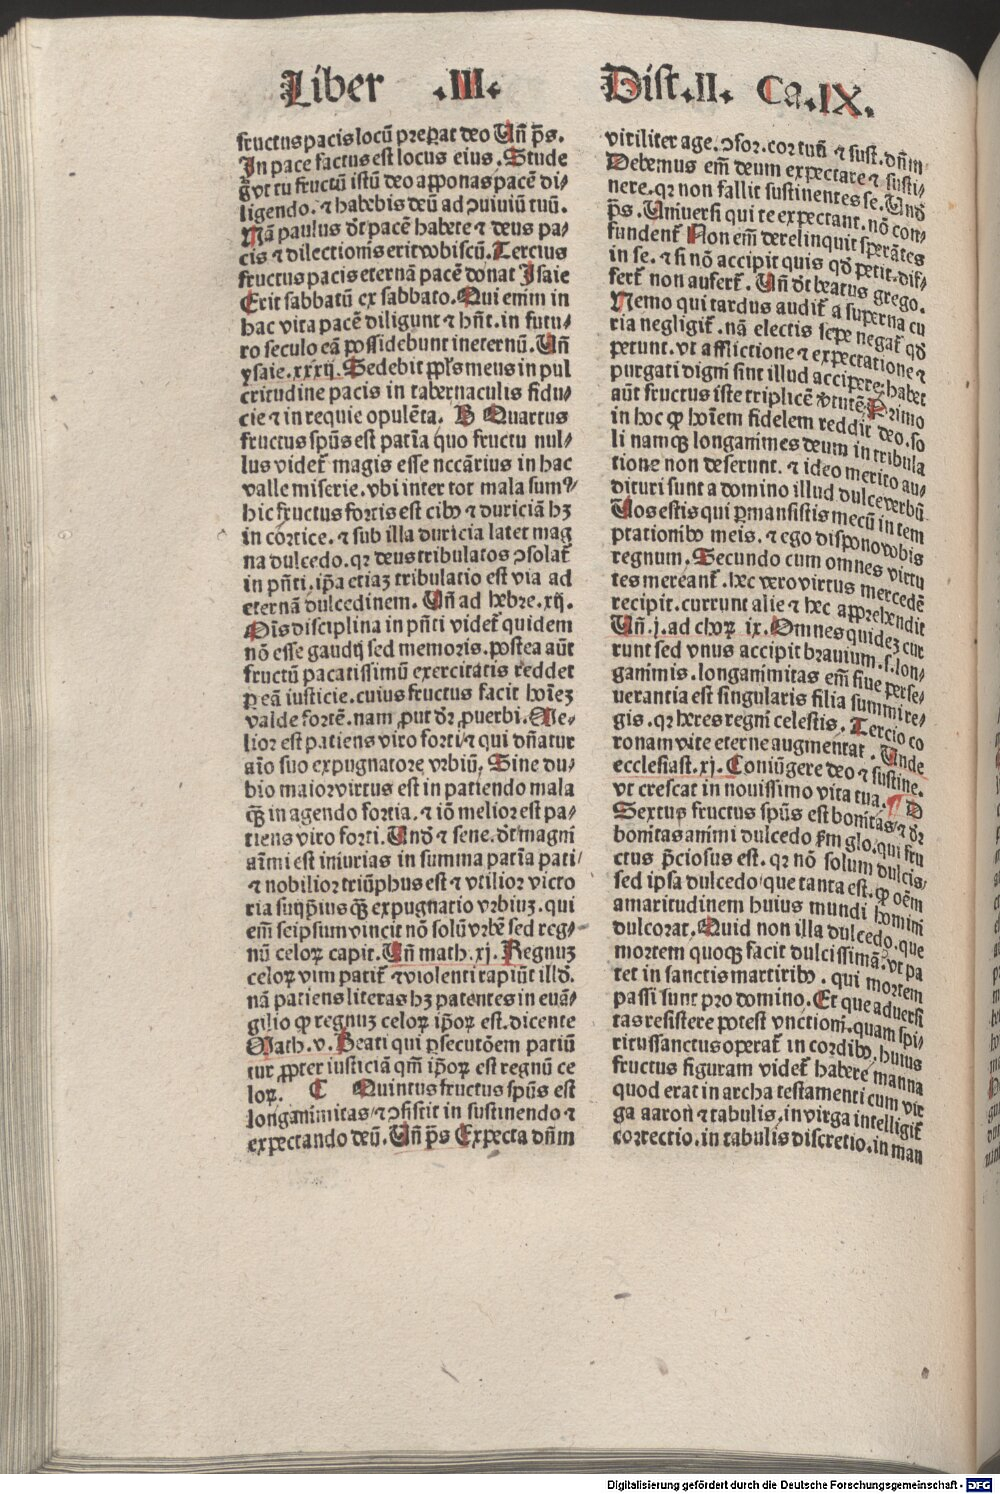 Liber .III. Dist.II. Ca.IX.
fructus pacis locū preꝑat deo Uñ p̄s.
In pace factus est locus eius. Stude
ḡ vt tu fructū istū deo apponas pacē di⸗
ligendo. ⁊ habebis deū ad ↄuiuiū tuū.
Nā paulus dt̄ pacē habete ⁊ deus pa⸗
cis ⁊ dilectionis erit vobiscū. Tercius
fructus pacis eternā pacē donat Isaie
Erit sabbatū ex sabbato. Qui enim in
hac vita pacē diligunt ⁊ hñt. in futu⸗
ro seculo eā possidebunt ineternū. Uñ
ysaie. xxxij. Sedebit ppl̄s meus in pul
critudine pacis in tabernaculis fidu⸗
cie ⁊ in requie opulēta. B Quartus
fructus spūs est patīa quo fructu nul⸗
lus videt̄ magis esse nccārius in hac
valle miserie. vbi inter tot mala sumꝰ⸗
hic fructus fortis est cibꝰ ⁊ duriciā hꝫ
in cortice. ⁊ sub illa duricia latet mag
na dulcedo. qr deus tribulatos ↄsolat̄
in pñti. ip̄a etiaꝫ tribulatio est via ad
eternā dulcedinem. Uñ ad hebre. xij.
Oīs disciplina in pñti videt̄ quidem
nō esse gaudij sed memoris. postea aūt
fructū pacatissimū exercitatis reddet
ꝑ eā iusticie. cuius fructus facit hoīeꝫ
valde fortē. nam ꝓut dr̄ ꝓuerbi. Me⸗
lior est patiens viro forti/⁊ qui dñatur
aīo suo expugnatore vrbiū, Sine du⸗
bio maior virtus est in patiendo mala
qꝫ̄ in agendo fortia. ⁊ iō melior est pa⸗
tiens viro forti. Und̄ ⁊ sene. dt̄ magni
aīmi est iniurias in summa patīa pati/
⁊ nobilior triūphus est ⁊ vtilior victo
ria suijp̄ius qꝫ̄ expugnatio vrbiuꝫ. qui
em̄ seipsum vincit nō solū vrbē sed reg⸗
nū celoꝝ capit. Uñ math. xj. Regnuꝫ
celoꝝ vim patit̄ ⁊ violenti rapiūt illd̄.
nā patiens literas hꝫ patentes in euā⸗
gilio ꝙ regnuꝫ celoꝝ ip̄oꝝ est. dicente
Math. v. Beati qui ꝑsecutōem patiū
tur ꝓpter iusticiā qm̄ ip̄oꝝ est regnū ce
loꝝ. C Quintus fructus spūs est
longanimitas/⁊ ↄsistit in sustinendo ⁊
expectando deū. Uñ p̄s Expecta dñm
viriliter age. ↄfor. cor tuū ⁊ sust. dñm
Debemus em̄ deum expectare ⁊ susti⸗
nere. qr non fallit sustinentes se. Und̄
p̄s. Uniuersi qui te expectant. nō con⸗
fundent̄ Non em̄ derelinquit sperātes
in se. ⁊ si nō accipit quis qd̄ petit. dif⸗
fert̄ non aufert̄. Uñ dt̄ beatus grego.
Nemo qui tardus audit̄ a superna cu
ria negligit̄. nā electis sepe negat̄ qd̄
petunt. vt afflictione ⁊ expectatione ⁊
purgati digni sint illud accipere: habet
aūt fructus iste triplicē v̄tutē. Primo
in hoc ꝙ hoīem fidelem reddit deo. so
li namqꝫ longanimes deum in tribula
tione non deserunt. ⁊ ideo merito au⸗
dituri sunt a domino illud dulce verbū
Uos estis qui ꝑmansistis mecū in tem
ptationibꝰ meis. ⁊ ego dispono vobis
regnum. Secundo cum omnes virtu
tes mereant̄. hec vero virtus mercedē
recipit. currunt alie ⁊ hec apprehendit
Uñ. j. ad choꝝ ix. Omnes quidez cur
runt sed vnus accipit brauium. s. lon⸗
ganimis. longanimitas em̄ siue perse⸗
uerantia est singularis filia summi re⸗
gis. qr heres regni celestis. Tercio co
ronam vite eterne augmentat. Unde
ecclesiast. xj. Coniūgere deo ⁊ sustine.
vt crescat in nouissimo vita tua. ¶ D
Sextus fructus spūs est bonitas/⁊ dr̄
bonitas animi dulcedo ẜm glo. qui fru
ctus p̄ciosus est. qr nō solum dulcis/
sed ipsa dulcedo/que tanta est. ꝙ oēm
amaritudinem huius mundi homini
dulcorat. Quid non illa dulcedo. que
mortem quoqꝫ facit dulcissimā. vt pa
tet in sanctis martiribꝰ. qui mortem
passi sunt pro domino. Et que aduersi
tas resistere potest vnctioni. quam spi⸗
ritussanctus operat̄ in cordibꝰ. huius
fructus figuram videt̄ habere manna
quod erat in archa testamenti cum vir
ga aaron ⁊ tabulis. in virga intelligit̄
correctio. in tabulis discretio. in man
Digitalisierung gefördert durch die Deutsche Forschungsgemeinschaft - DFG